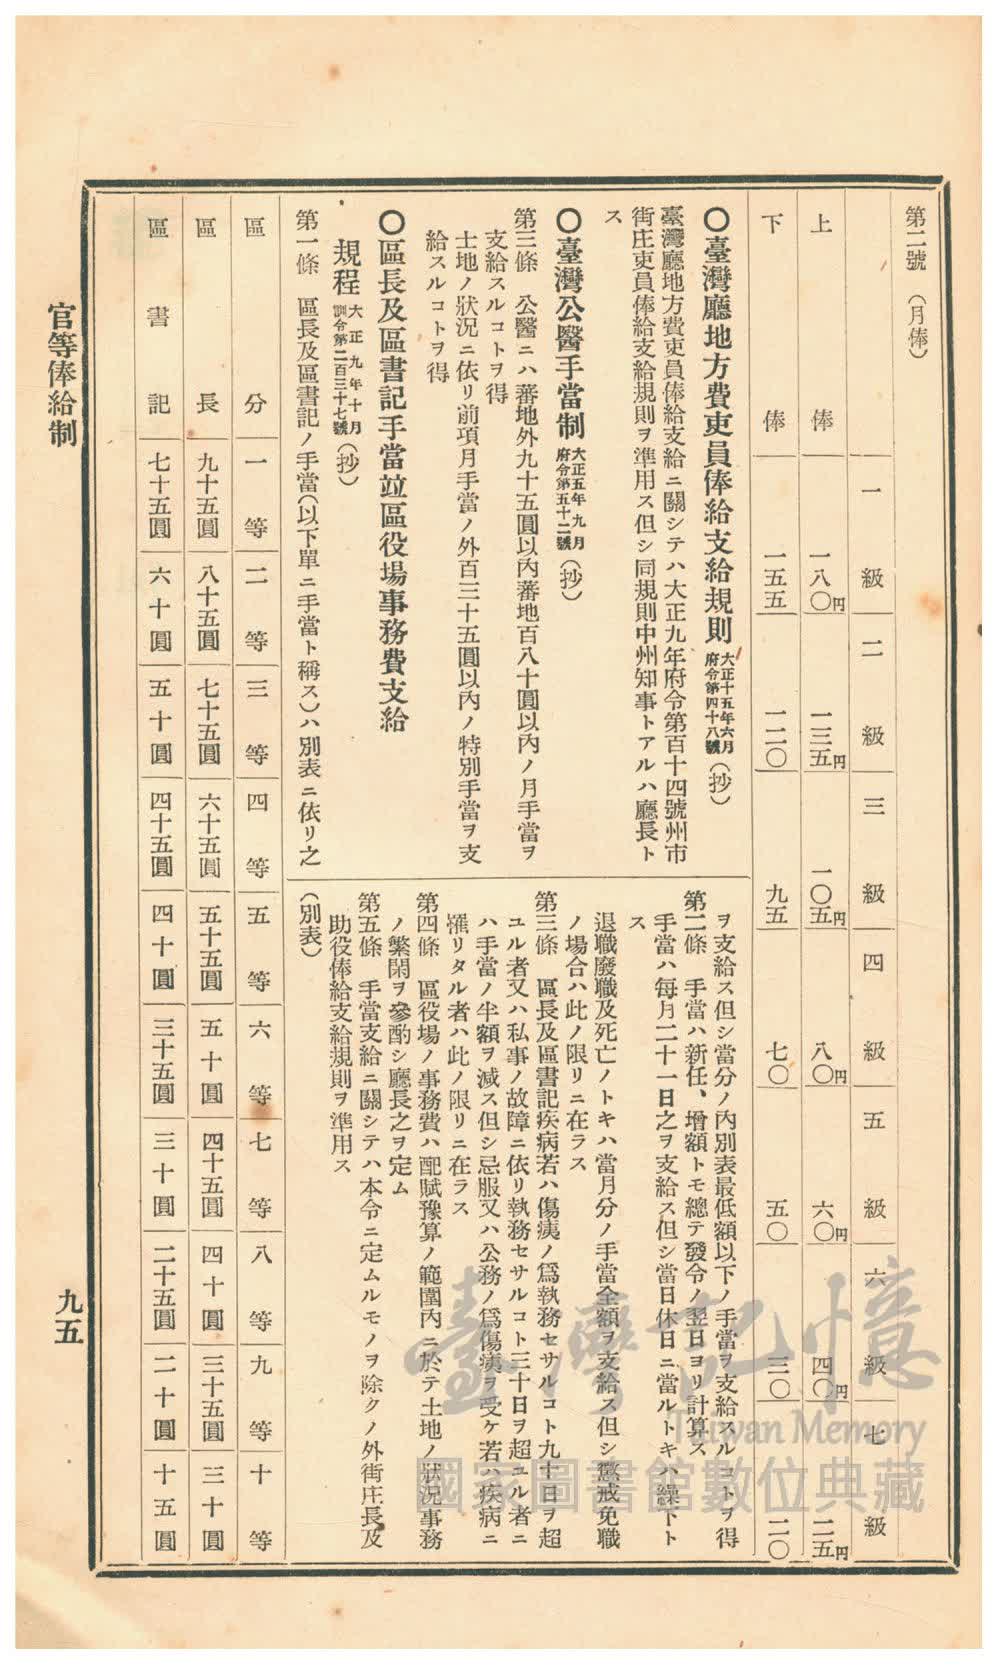 第二號（月俸）
一級 二級 三級 四級 五級 六級 七級
上俸 一八〇円 一三五円 一〇五円 八〇円 六〇円 四〇円 二五円
下俸 一五五 一二〇 九五 七〇 五〇 三〇 二〇
〇臺灣廳地方費吏員俸給支給規則 大正十五年六月府令第四十八號（抄）
臺灣廳地方費吏員俸給支給ニ關シテハ大正九年府令第百十四號州市
街庄吏員俸給支給規則ヲ準用ス但シ同規則中州知事トアルハ廳長ト
ス
〇臺灣公醫手當制 大正五年九月府令第五十二號（抄）
第三條　公醫ニハ蕃地外九十五圓以內蕃地百八十圓以內ノ月手當ヲ
支給スルコトヲ得
土地ノ狀況ニ依リ前項月手當ノ外百三十五圓以內ノ特別手當ヲ支
給スルコトヲ得
〇區長及區書記手當竝區役場事務費支給
規程 大正九年十月訓令第二百三十七號（抄）
第一條　區長及區書記ノ手當（以下單ニ手當ト稱ス）ハ別表ニ依リ之
ヲ支給ス但シ當分ノ內別表最低額以下ノ手當ヲ支給スルコトヲ得
第二條　手當ハ新任、增額トモ總テ發令ノ翌日ヨリ計算ス
手當ハ每月二十一日之ヲ支給ス但シ當日休日ニ當ルトキハ繰下ト
ス
退職廢職及死亡ノトキハ當月分ノ手當全額ヲ支給ス但シ懲戒免職
ノ場合ハ此ノ限リニ在ラス
第三條　區長及區書記疾病若ハ傷痍ノ爲執務セサルコト九十日ヲ超
ユル者又ハ私事ノ故障ニ依リ執務セサルコト三十日ヲ超ユル者ニ
ハ手當ノ半額ヲ減ス但シ忌服又ハ公務ノ爲傷痍ヲ受ケ若ハ疾病ニ
罹リタル者ハ此ノ限リニ在ラス
第四條　區役場ノ事務費ハ配賦豫算ノ範圍內ニ於テ土地ノ狀況事務
ノ繁閑ヲ參酌シ廳長之ヲ定ム
第五條　手當支給ニ關シテハ本令ニ定ムルモノヲ除クノ外街庄長及
助役俸給支給規則ヲ準用ス
（別表）
區分 一等 二等 三等 四等 五等 六等 七等 八等 九等 十等
區長 九十五圓 八十五圓 七十五圓 六十五圓 五十五圓 五十圓 四十五圓 四十圓 三十五圓 三十圓
區書記 七十五圓 六十圓 五十圓 四十五圓 四十圓 三十五圓 三十圓 二十五圓 二十圓 十五圓
官等俸給制
九五
臺灣記憶
Taiwan Memory
國家圖書館數位典藏